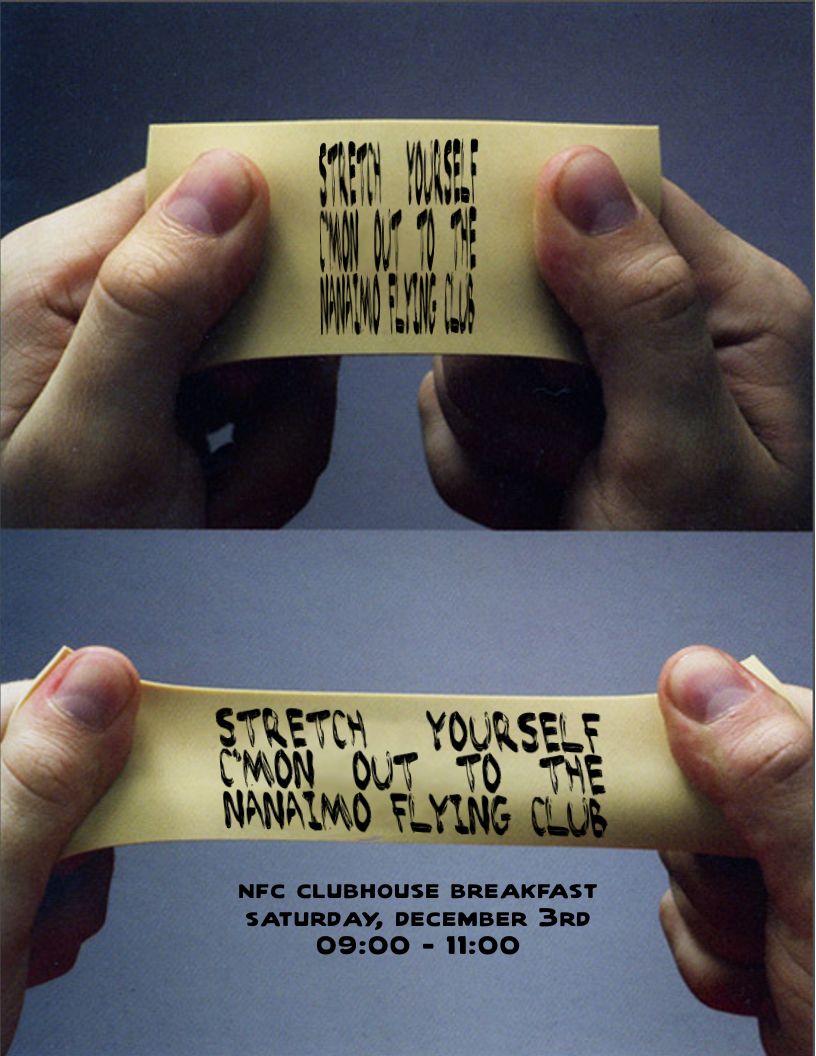 STRETCH YOURSELF
C'MON OUT TO THE
NANAIMO FLYING CLUB
STRETCH YOURSELF
C'MON OUT TO THE
NANAIMO FLYING CLUB
NFC CLUBHOUSE BREAKFAST
SATURDAY, DECEMBER 3RD
09:00 - 11:00